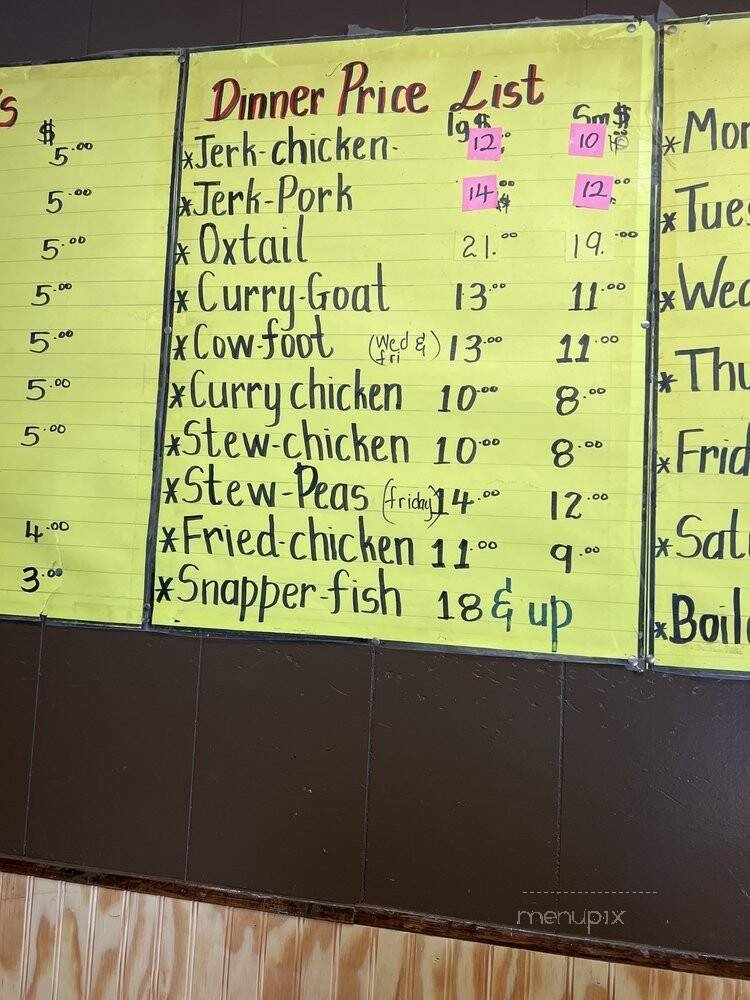 's
$
5.00
5.00
5.00
5.00
5.00
5.00
5.00
4.00
3.00
Dinner Price List
lg $ Sm $
*Jerk-chicken- 12. 10
*Jerk-Pork 14.00 12.00
* Oxtail 21.00 19.00
* Curry-Goat 13.00 11.00
*Cow-foot (Wed & fri) 13.00 11.00
*Curry chicken 10.00 8.00
*Stew-chicken 10.00 8.00
*Stew-Peas (friday) 14.00 12.00
*Fried-chicken 11.00 9.00
*Snapper-fish 18 & up
*Mon
*Tues
*Wed
*Thu
*Frid
*Sat
*Boil
menupix